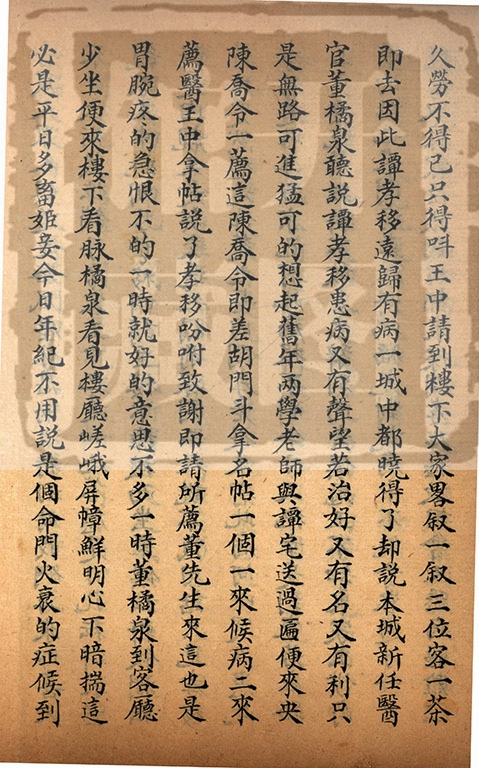 久勞不得已只得呌王中請到樓下大家畧叙一叙三位客一茶
即去因此譚孝移遠歸有病一城中都曉得了却說本城新任醫
官董橘泉聽説譚孝移患病又有聲望若治好又有名又有利只
是無路可進猛可的想起舊年兩學老師與譚宅送過匾便來央
陳喬令一薦這陳喬令即差胡門斗拿名帖一個一來候病二來
薦醫王中拿帖説了孝移吩咐致謝即請所薦董先生來這也是
胃腕疼的急恨不的一時就好的意思不多一時董橘泉到客廳
少坐便來樓下看脉橘泉看見樓廳嵯峨屏幛鮮明心下暗揣這
必是平日多畜姬妾今日年紀不用説是個命門火衰的症候到